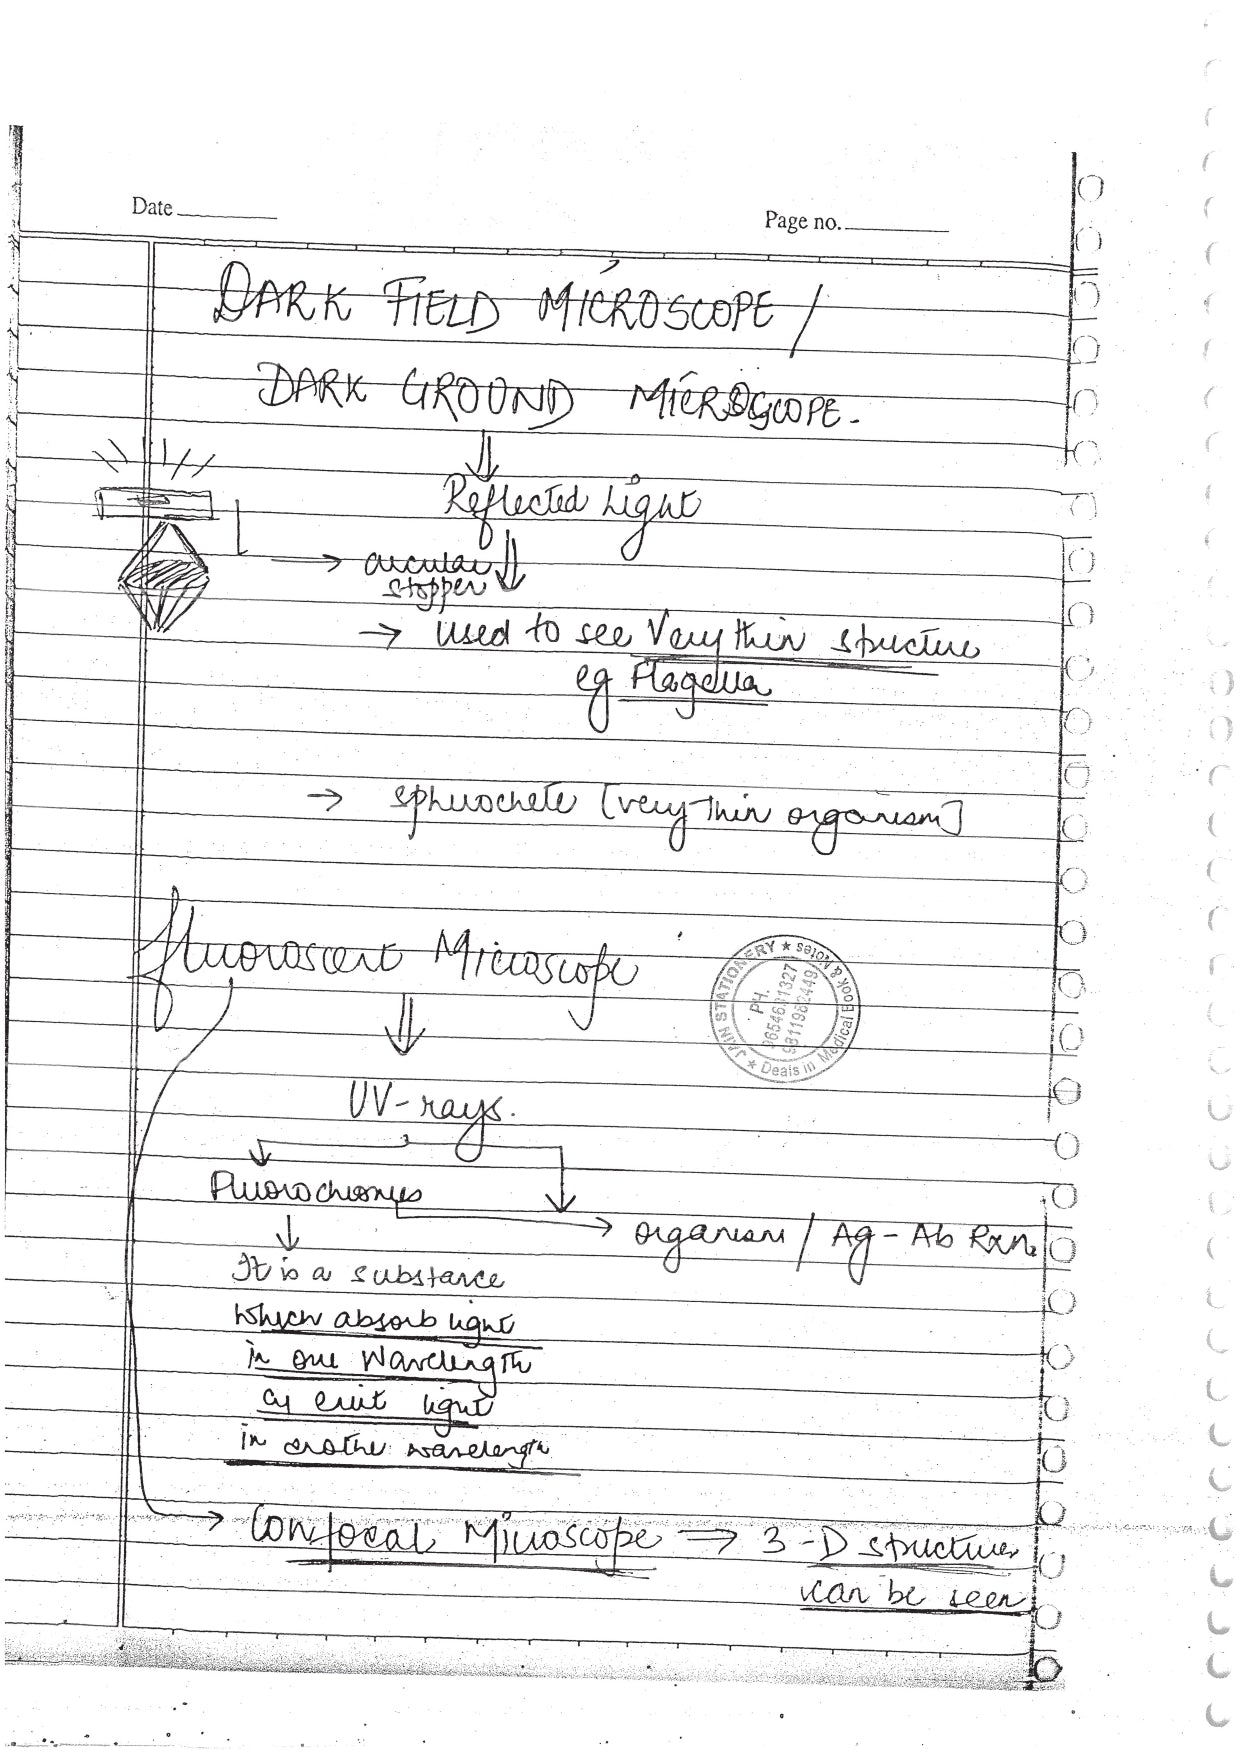 Date
Page no.
DARK FIELD MICROSCOPE /
DARK GROUND MICROSCOPE.
Reflected Light
→ circular
stopper
→ used to see Very thin structure
eg Flagella
→ sphirochete [very thin organism]
Fluoroscent Microscope
JAIN STATIONERY ★ Deals in Medical Book & Notes ★
PH.
UV-rays.
Fluorochromes
→ organism / Ag-Ab Rxn.
It is a substance
which absorb light
in one Wavelength
& emit light
in anothe wavelength
→ Confocal Microscope ⇒ 3-D structures
can be seen